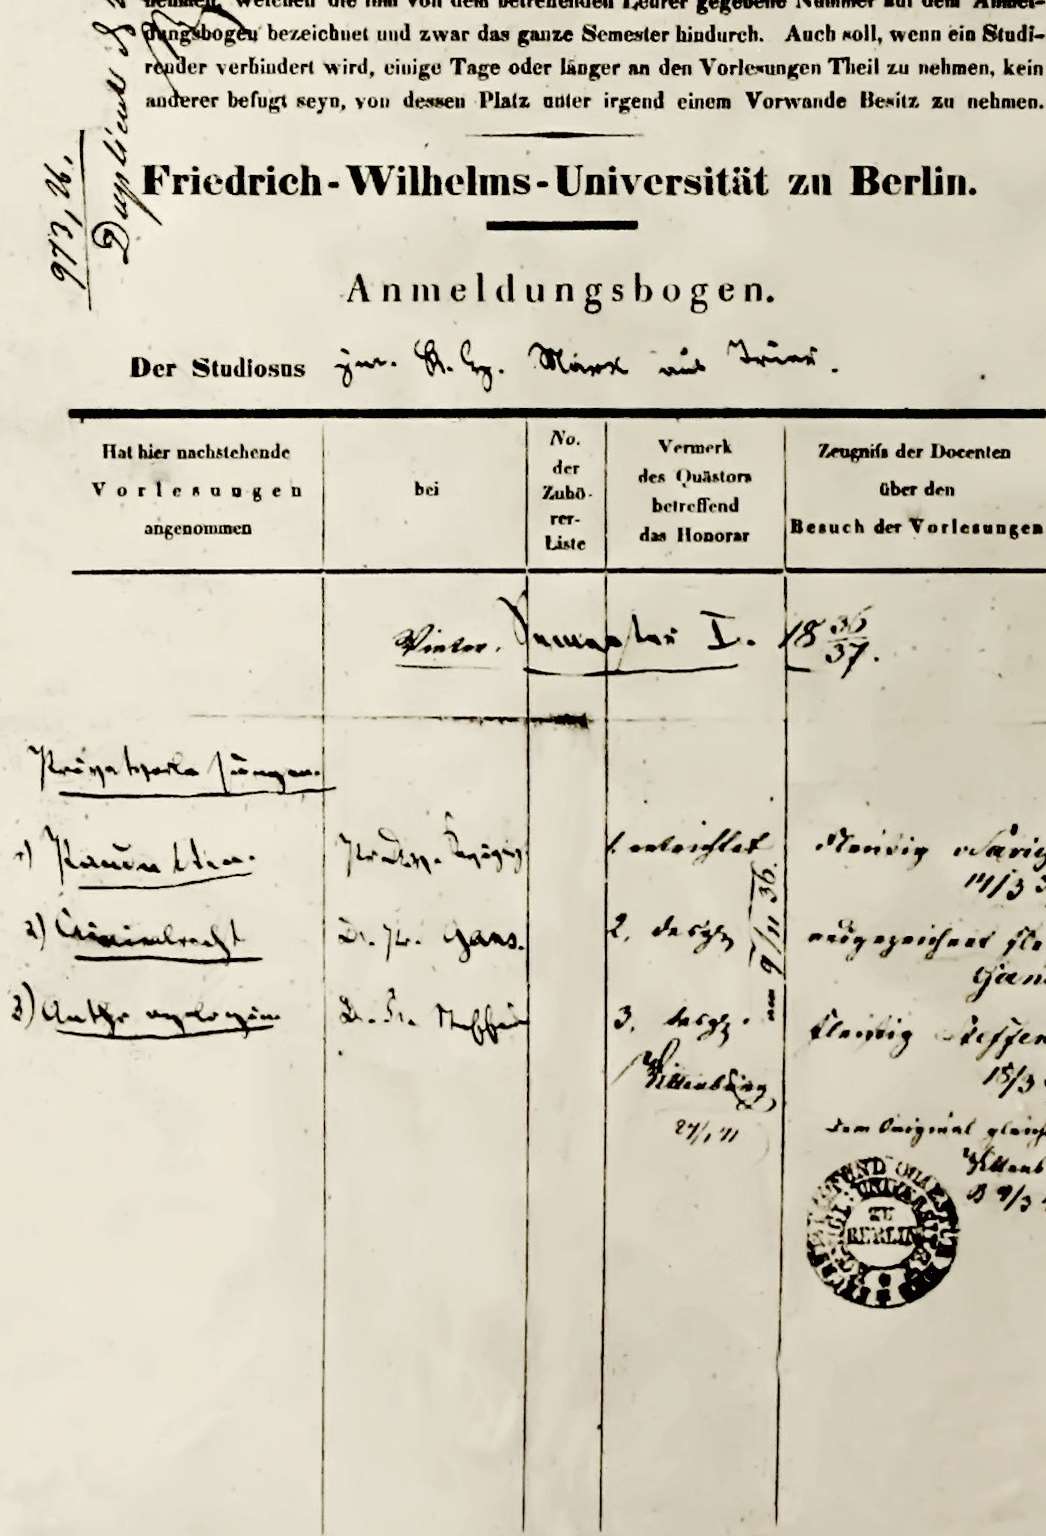 nehmen, welchen die ihm von dem betreffenden Lehrer gegebene Nummer auf dem Anmel-
dungsbogen bezeichnet und zwar das ganze Semester hindurch. Auch soll, wenn ein Studi-
render verhindert wird, einige Tage oder länger an den Vorlesungen Theil zu nehmen, kein
anderer befugt seyn, von dessen Platz unter irgend einem Vorwande Besitz zu nehmen.
973, 26.
Duplicat
Friedrich-Wilhelms-Universität zu Berlin.
Anmeldungsbogen.
Der Studiosus jur. K. H. Marx aus Trier.
Hat hier nachstehende
Vorlesungen
angenommen
bei
No.
der
Zuhö-
rer-
Liste
Vermerk
des Quästors
betreffend
das Honorar
Zeugniſs der Docenten
über den
Besuch der Vorlesungen
Winter. Semester I. 18 36/37.
Privatvorlesungen.
1) Pandekten. Savigny. 1. entrichtet fleissig Savig
2) Criminalrecht Gans. 2. desgl. ausgezeichnet fle
Gans
3) Anthropologie Steffens 3. desgl. fleissig Steffen
am 9/11 36.
Wittenburg
18/3
Dem Original gleich
ZU
BERLIN